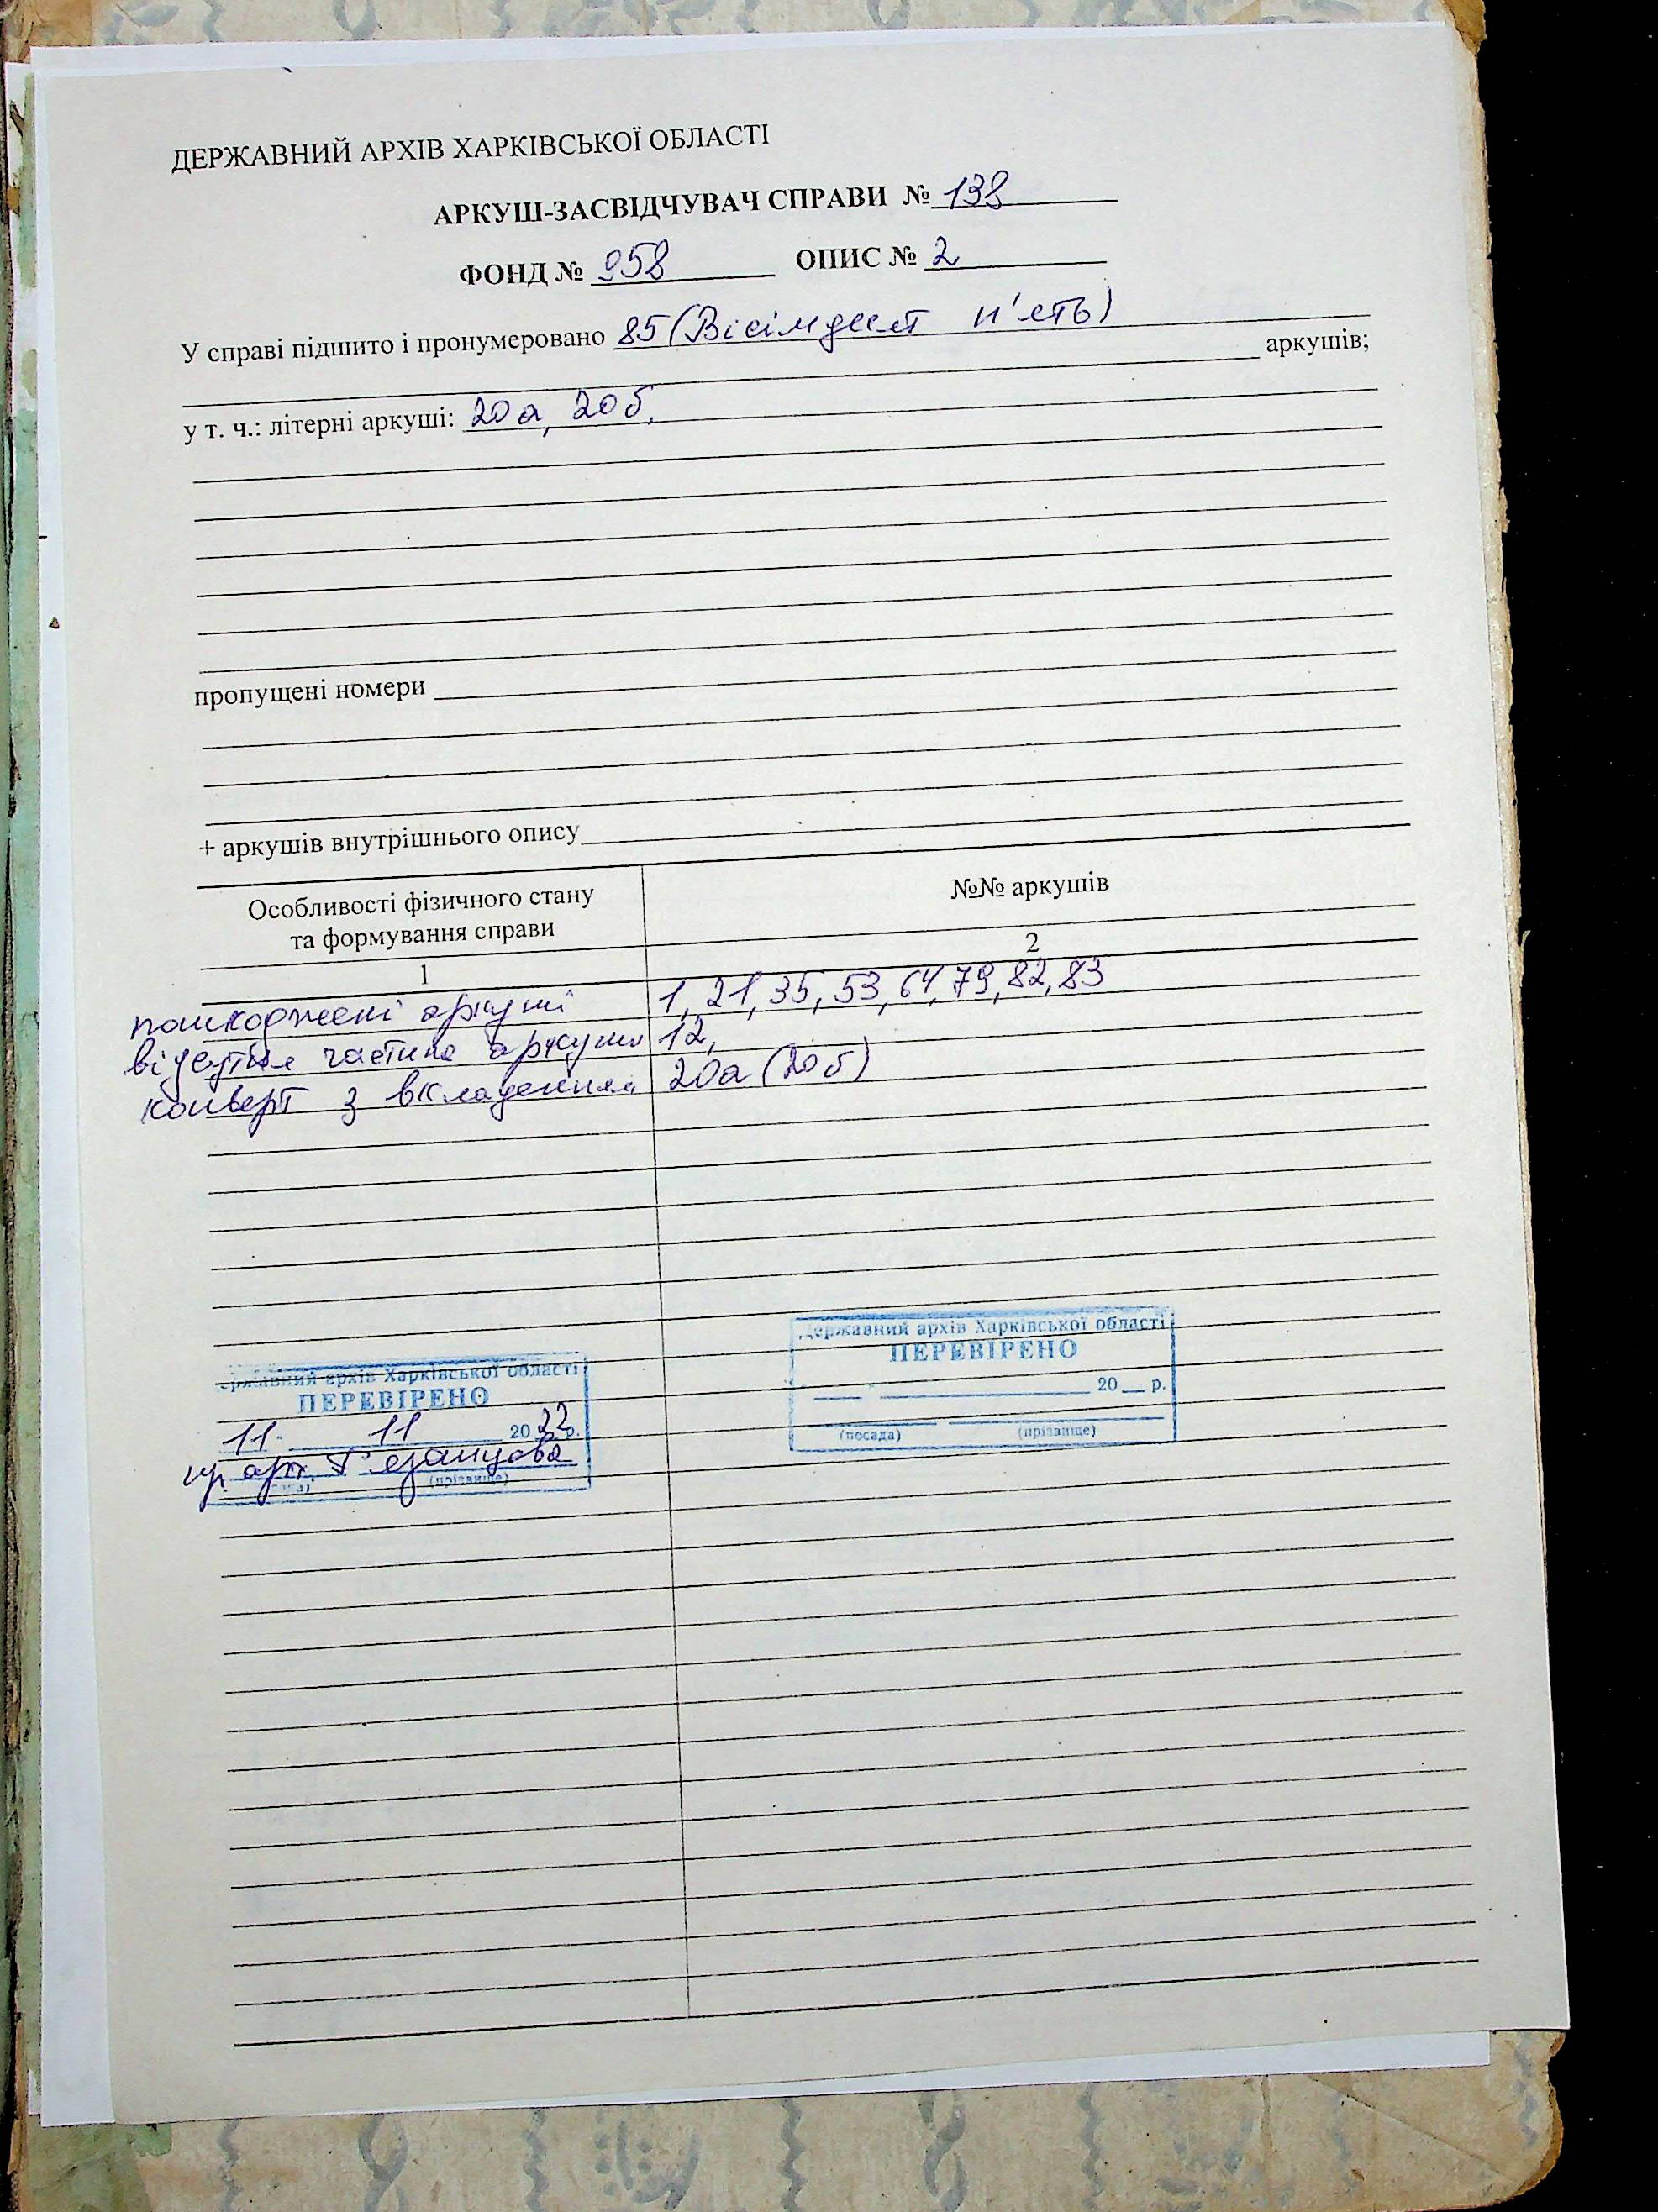 ДЕРЖАВНИЙ АРХІВ ХАРКІВСЬКОЇ ОБЛАСТІ
АРКУШ-ЗАСВІДЧУВАЧ СПРАВИ № 138
ФОНД № 958 ОПИС № 2
У справі підшито і пронумеровано 85 (Вісімдесят п'ять)
аркушів;
у т. ч.: літерні аркуші: 20а, 20б.
пропущені номери
+ аркушів внутрішнього опису
Особливості фізичного стану та формування справи №№ аркушів
1 2
пошкоджені аркуші 1, 21, 35, 53, 64, 79, 82, 83
відсутня частина аркуша 12,
конверт з вкладенням 20а (20б)
Державний архів Харківської області
ПЕРЕВІРЕНО
20__ р.
(посада) (прізвище)
ержавний архів Харківської області
ПЕРЕВІРЕНО
11 11 2022 р.
арх.
(прізвище)